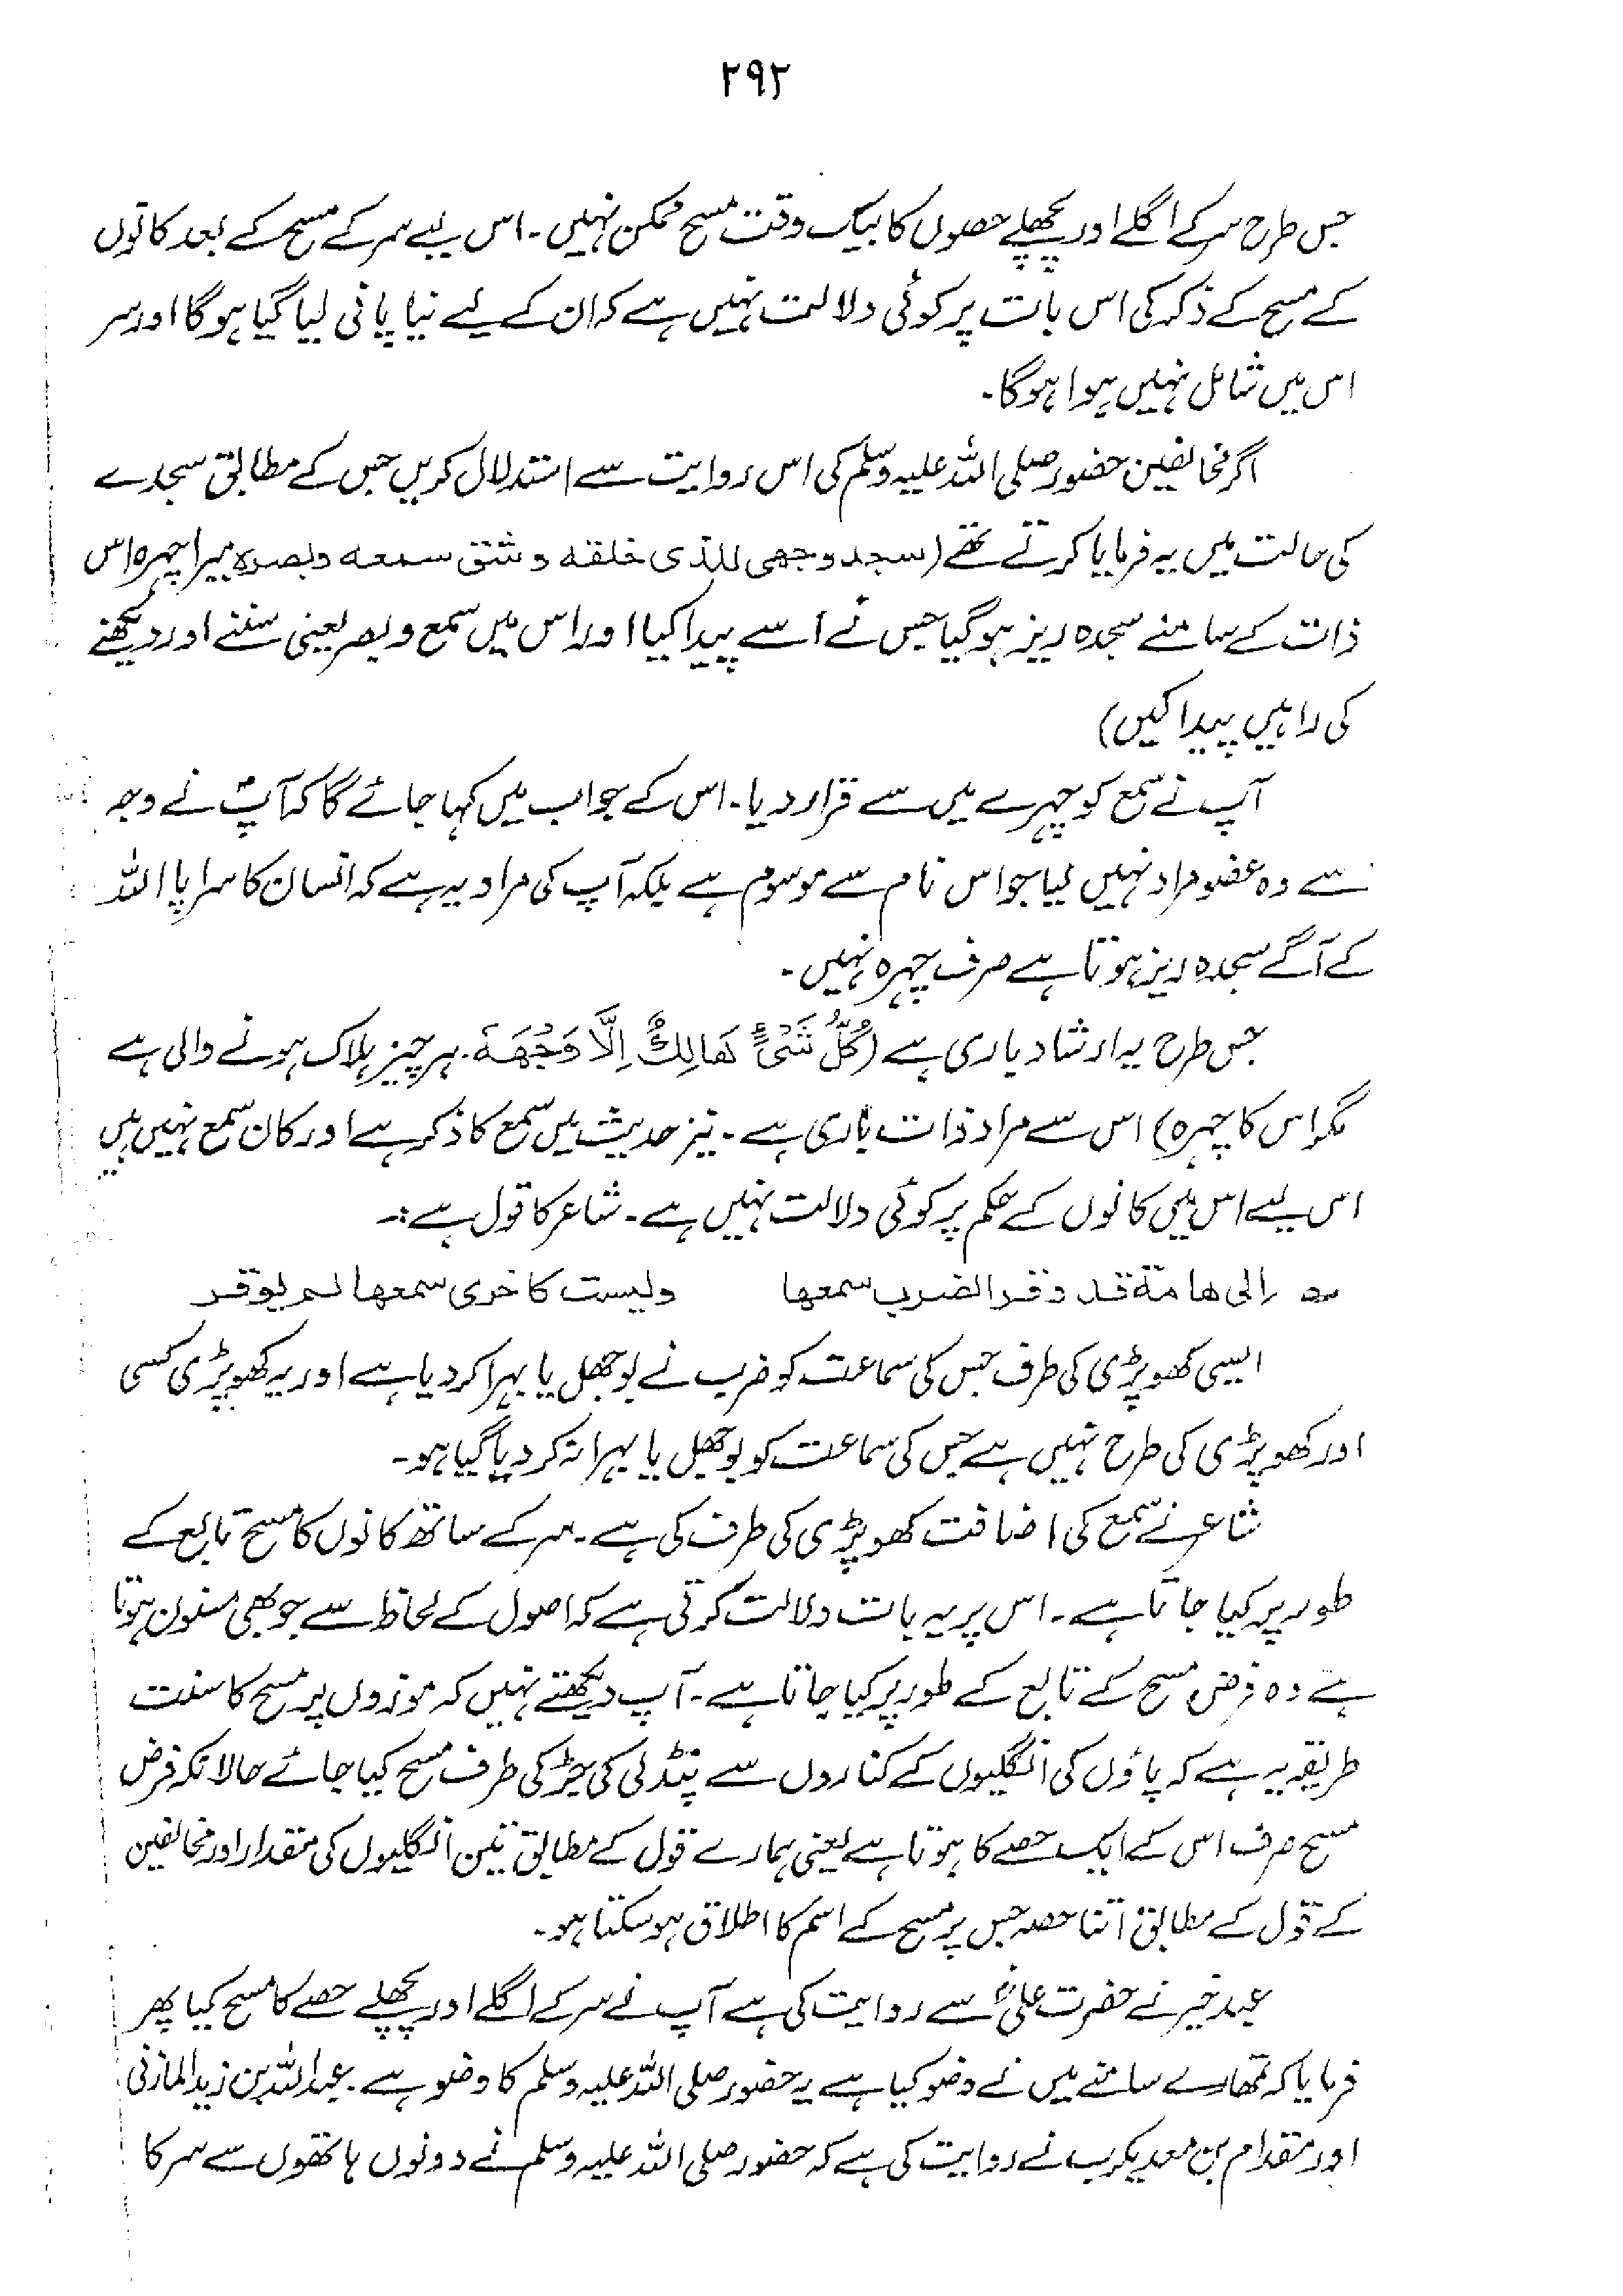 ۲۹۲
جس طرح سر کے اگلے اور پچھلے حصوں کا بیک وقت مسح ممکن نہیں۔ اس لیے سر کے مسح کے بعد کانوں
کے مسح کے ذکر کی اس بات پر کوئی دلالت نہیں ہے کہ ان کے لیے نیا پانی لیا گیا ہوگا اور سر
اس میں شامل نہیں ہوا ہوگا۔
اگر مخالفین حضور صلی اللہ علیہ وسلم کی اس روایت سے استدلال کریں جس کے مطابق سجدے
کی حالت میں یہ فرمایا کرتے تھے (سجد وجھی للذی خلقه وشق سمعه وبصرہ میرا چہرہ اس
ذات کے سامنے سجدہ ریز ہو گیا جس نے اسے پیدا کیا اور اس میں سمع و بصر یعنی سننے اور دیکھنے
کی راہیں پیدا کیں)
آپ نے سمع کو چہرے میں سے قرار دیا۔ اس کے جواب میں کہا جائے گا کہ آپؐ نے وجہ
سے وہ عضو مراد نہیں لیا جو اس نام سے موسوم ہے بلکہ آپ کی مراد یہ ہے کہ انسان کا سراپا اللہ
کے آگے سجدہ ریز ہوتا ہے صرف چہرہ نہیں۔
جس طرح یہ ارشاد باری ہے (كُلُّ شَیْءٍ هَالِكٌ اِلَّا وَجْهَهٗ۔ ہر چیز ہلاک ہونے والی ہے
مگر اس کا چہرہ) اس سے مراد ذات باری ہے۔ نیز حدیث میں سمع کا ذکر ہے اور کان سمع نہیں ہیں
اس لیے اس میں کانوں کے حکم پر کوئی دلالت نہیں ہے۔ شاعر کا قول ہے:۔
؎ الی ھامة قد وقر الضرب سمعھا ولیست کاخری سمعھا لم یوقر
ایسی کھوپڑی کی طرف جس کی سماعت کو ضرب نے بوجھل یا بہرا کر دیا ہے اور یہ کھوپڑی کسی
اور کھوپڑی کی طرح نہیں ہے جس کی سماعت کو بوجھل یا بہرا نہ کر دیا گیا ہو۔
شاعر نے سمع کی اضافت کھوپڑی کی طرف کی ہے۔ سر کے ساتھ کانوں کا مسح تابع کے
طور پر کیا جاتا ہے۔ اس پر یہ بات دلالت کرتی ہے کہ اصول کے لحاظ سے جو بھی مسنون ہوتا
ہے وہ فرض مسح کے تابع کے طور پر کیا جاتا ہے۔ آپ دیکھتے نہیں کہ موزوں پر مسح کا سنت
طریقہ یہ ہے کہ پاؤں کی انگلیوں کے کناروں سے پنڈلی کی جڑ کی طرف مسح کیا جائے حالانکہ فرض
مسح صرف اس کے ایک حصے کا ہوتا ہے یعنی ہمارے قول کے مطابق تین انگلیوں کی مقدار اور مخالفین
کے قول کے مطابق اتنا حصہ جس پر مسح کے اسم کا اطلاق ہو سکتا ہو۔
عبد خیر نے حضرت علیؓ سے روایت کی ہے آپ نے سر کے اگلے اور پچھلے حصے کا مسح کیا پھر
فرمایا کہ تمھارے سامنے میں نے وضو کیا ہے یہ حضور صلی اللہ علیہ وسلم کا وضو ہے۔ عبداللہ بن زید المازنی
اور مقدام بن معدیکرب نے روایت کی ہے کہ حضور صلی اللہ علیہ وسلم نے دونوں ہاتھوں سے سر کا